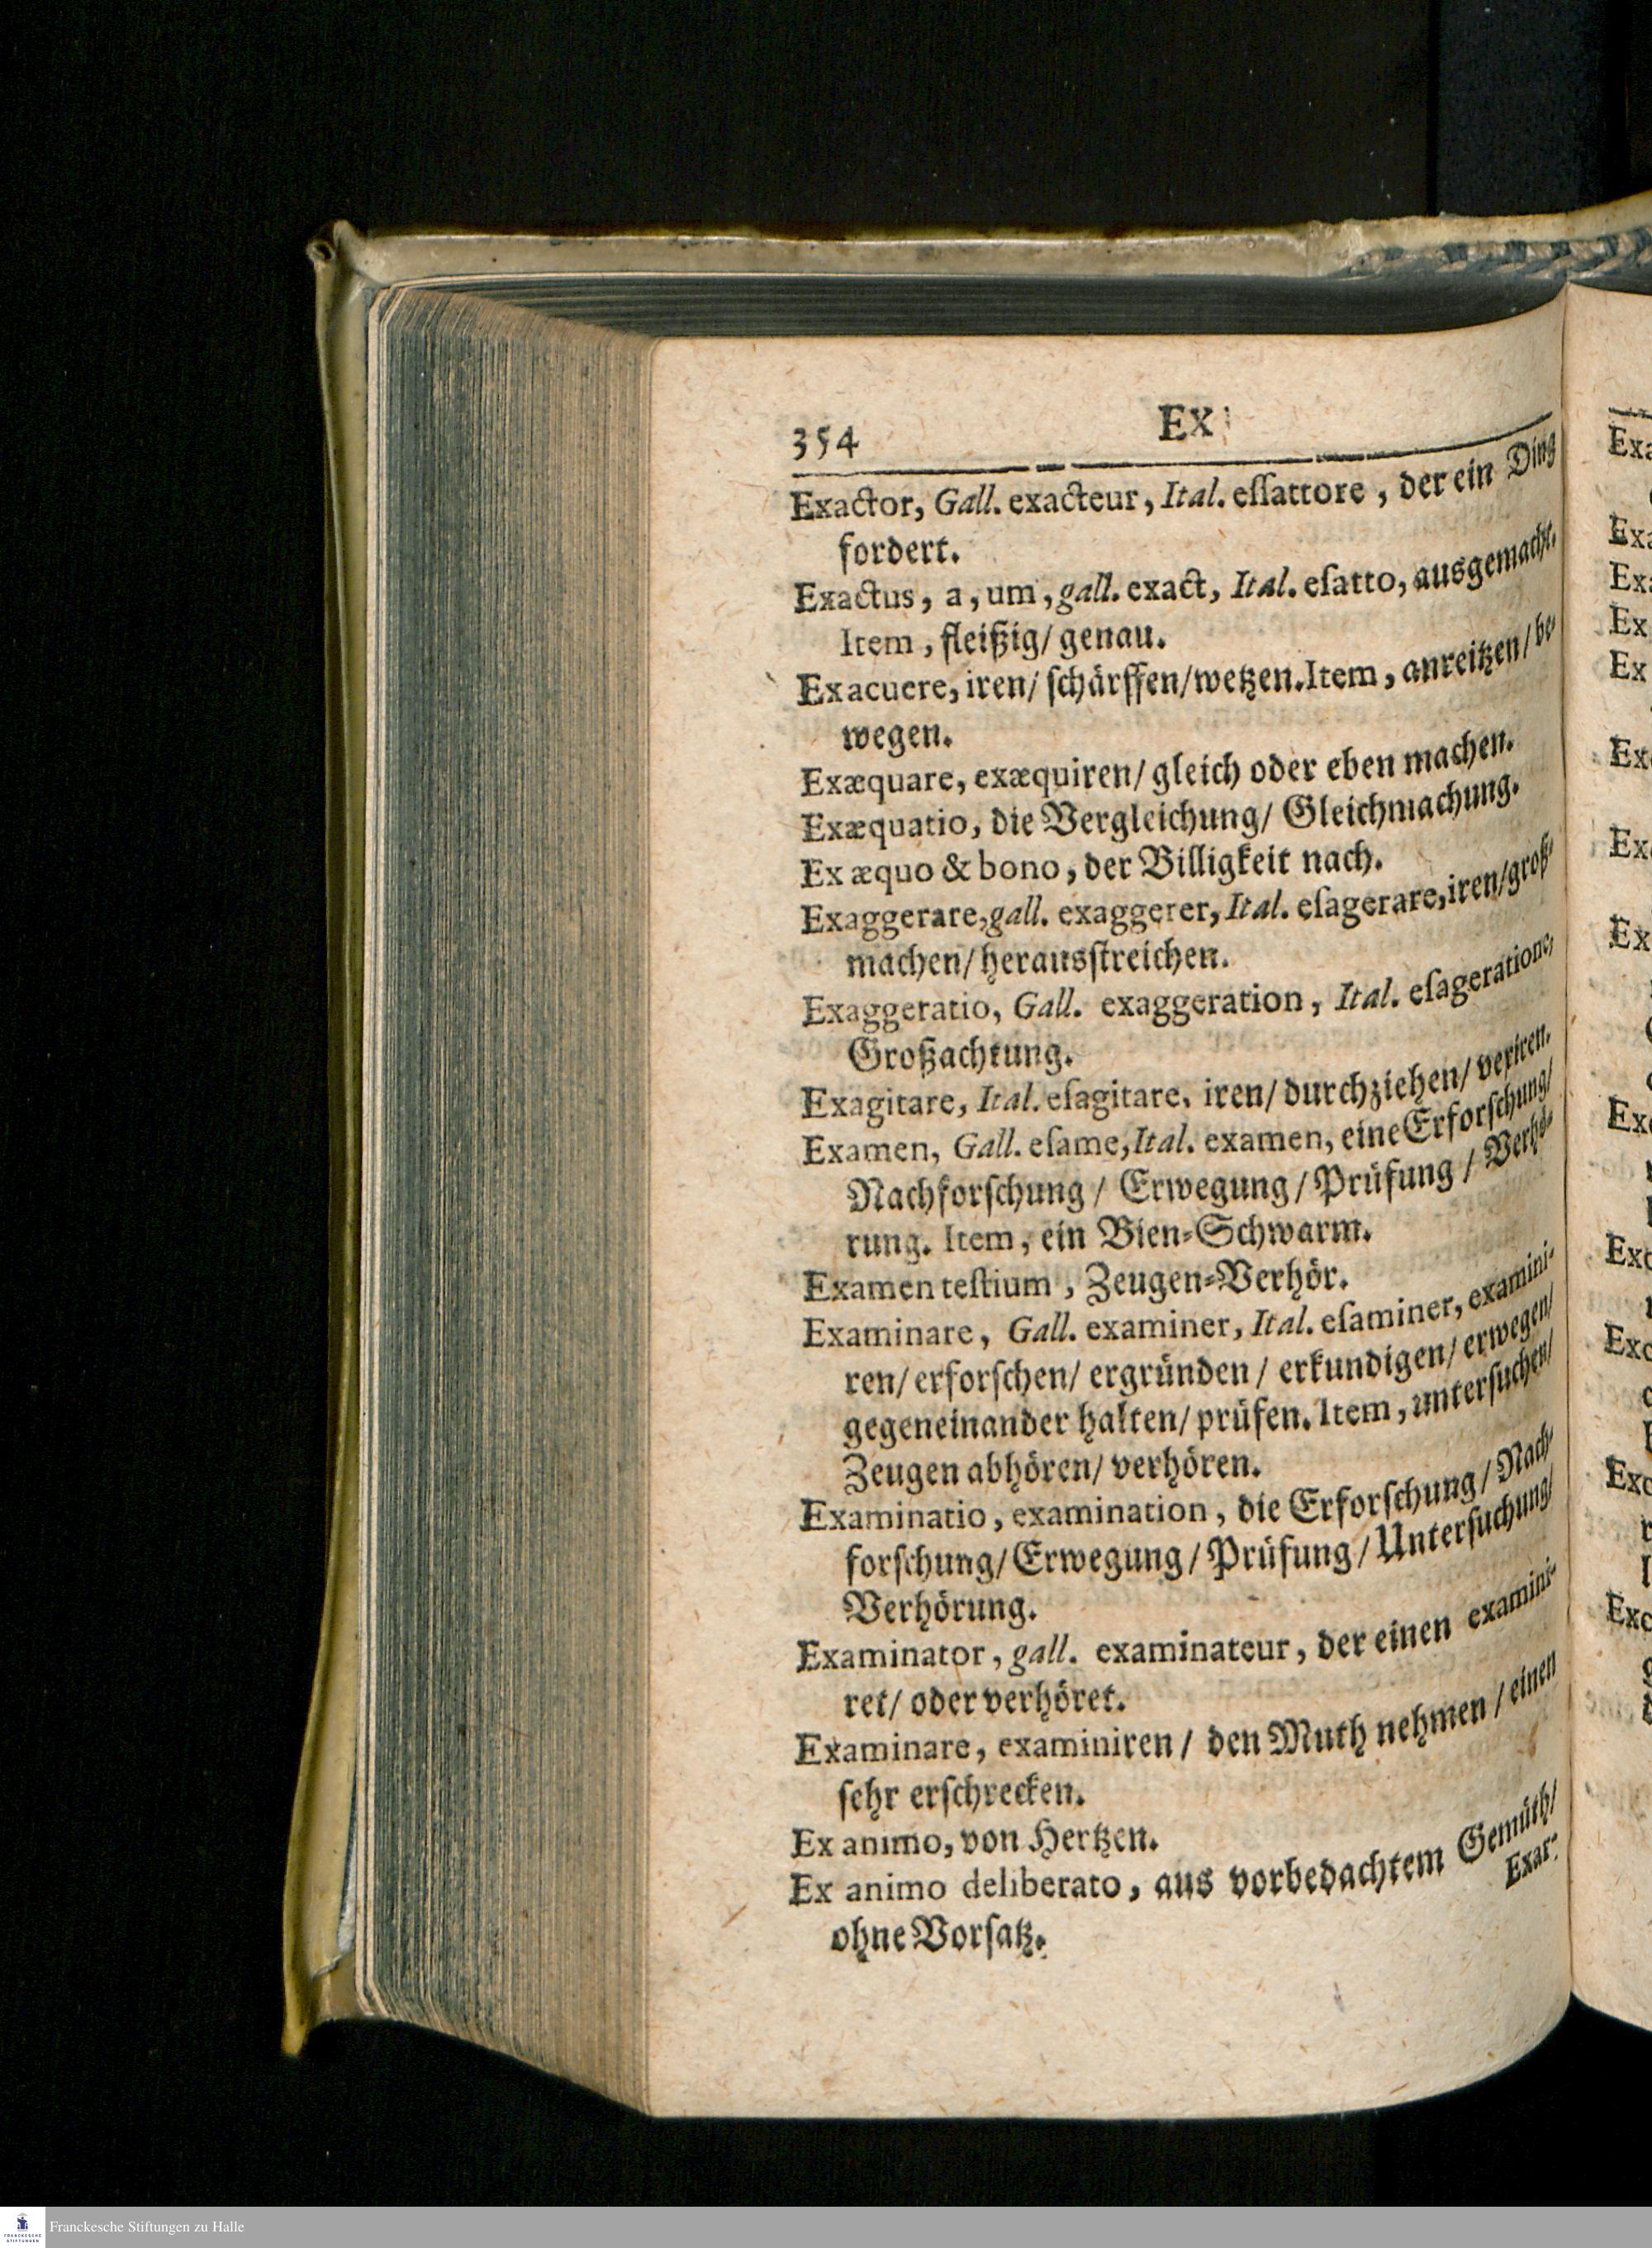 354 EX
Exactor, Gall. exacteur, Ital. eſſattore, der ein Ding
fordert.
Exactus, a, um, gall. exact, Ital. eſatto, ausgemacht.
Item, fleißig/ genau.
Exacuere, iren/ ſchärffen/ wetzen. Item, anreitzen/ be-
wegen.
Exæquare, exæquiren/ gleich oder eben machen.
Exæquatio, die Vergleichung/ Gleichmachung.
Ex æquo & bono, der Billigkeit nach.
Exaggerare, gall. exaggerer, Ital. eſagerare, iren/ groß-
machen/ herausſtreichen.
Exaggeratio, Gall. exaggeration, Ital. eſageratione,
Großachtung.
Exagitare, Ital. eſagitare, iren/ durchziehen/ vexiren.
Examen, Gall. eſame, Ital. examen, eine Erforſchung/
Nachforſchung/ Erwegung/ Prüfung/ Verhö-
rung. Item, ein Bien-Schwarm.
Examen teſtium, Zeugen-Verhör.
Examinare, Gall. examiner, Ital. eſaminer, examini-
ren/ erforſchen/ ergründen/ erkundigen/ erwegen/
gegeneinander halten/ prüfen. Item, unterſuchen/
Zeugen abhören/ verhören.
Examinatio, examination, die Erforſchung/ Nach-
forſchung/ Erwegung/ Prüfung/ Unterſuchung/
Verhörung.
Examinator, gall. examinateur, der einen examini-
ret/ oder verhöret.
Examinare, examiniren/ den Muth nehmen/ einen
ſehr erſchrecken.
Ex animo, von Hertzen.
Ex animo deliberato, aus vorbedachtem Gemüth/
ohne Vorſatz.
Exar-
Franckesche Stiftungen zu Halle